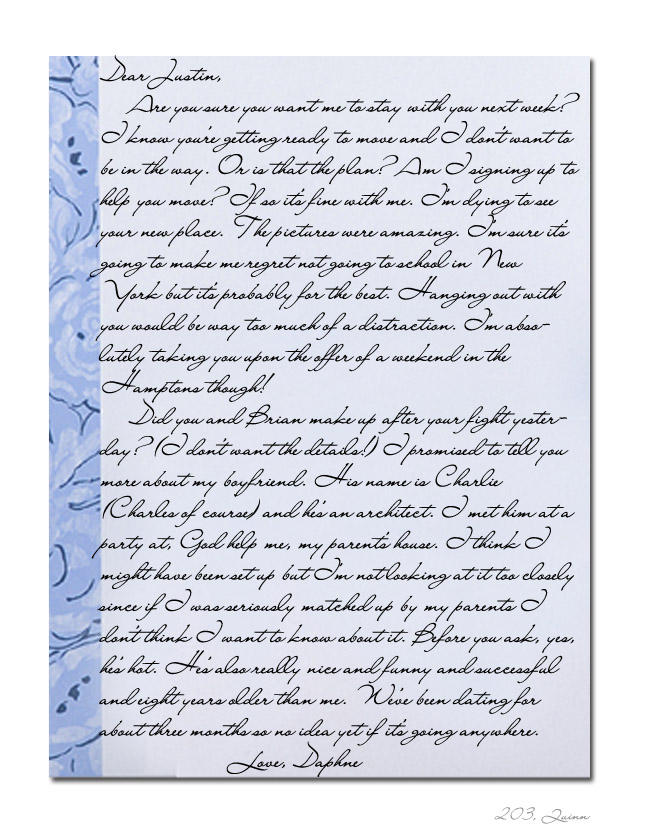 Dear Justin,
Are you sure you want me to stay with you next week?
I know you're getting ready to move and I don't want to
be in the way. Or is that the plan? Am I signing up to
help you move? If so it's fine with me. I'm dying to see
your new place. The pictures were amazing. I'm sure it's
going to make me regret not going to school in New
York but it's probably for the best. Hanging out with
you would be way too much of a distraction. I'm abso-
lutely taking you upon the offer of a weekend in the
Hamptons though!
Did you and Brian make up after your fight yester-
day? (I don't want the details!) I promised to tell you
more about my boyfriend. His name is Charlie
(Charles of course) and he's an architect. I met him at a
party at, God help me, my parent's house. I think I
might have been set up but I'm not looking at it too closely
since if I was seriously matched up by my parents I
don't think I want to know about it. Before you ask, yes,
he's hot. He's also really nice and funny and successful
and eight years older than me. We've been dating for
about three months so no idea yet if it's going anywhere.
Love, Daphne
203, Quinn